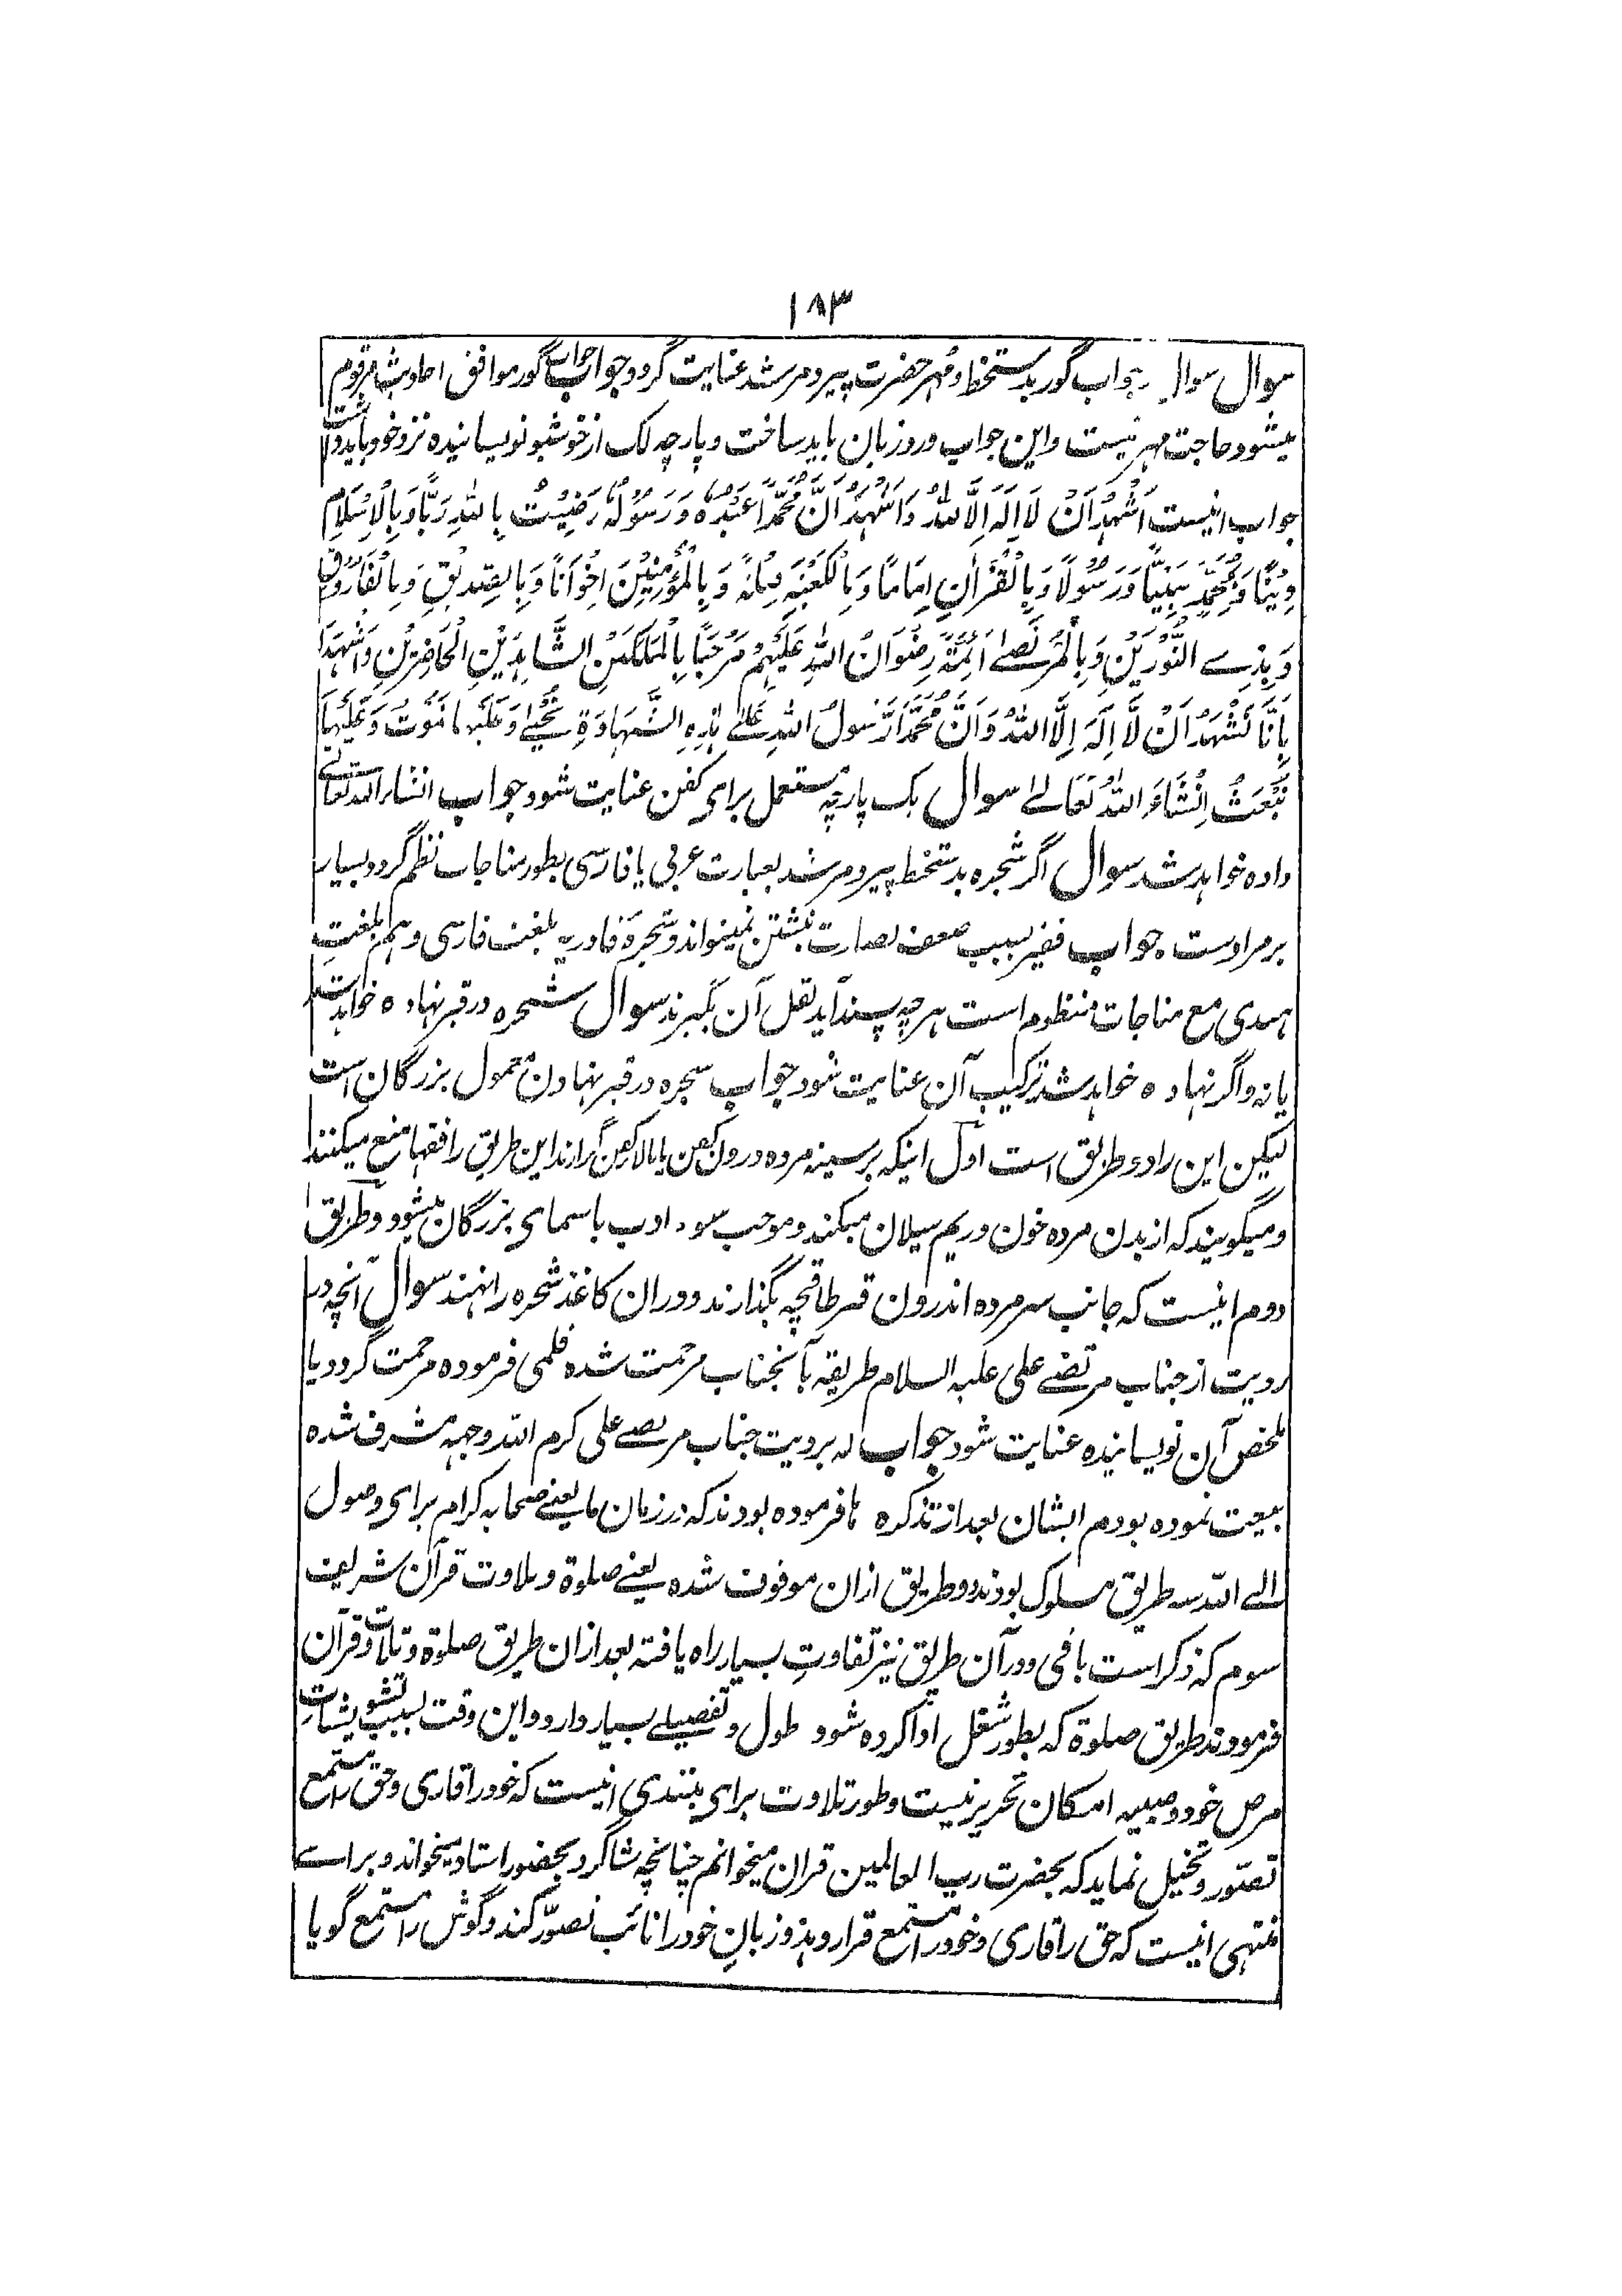 ۱۸۳
سوال سوال جواب گور بدستخط و مهر حضرت پیر و مرشد عنایت گردد جواب جواب گور موافق احادیث مرقوم
میشود حاجت مهر نیست و این جواب ورد زبان باید ساخت و پارچه لک از خوشبو نویسانیده نزد خود باید داشت
جواب اینست اَشْهَدُ اَنْ لَا اِلٰهَ اِلَّا اللّٰهُ وَاَشْهَدُ اَنَّ مُحَمَّدًا عَبْدُهٗ وَرَسُوْلُهٗ رَضِیْتُ بِاللّٰهِ رَبًّا وَبِالْاِسْلَامِ
دِیْنًا وَبِمُحَمَّدٍ نَبِیًّا وَرَسُوْلًا وَبِالْقُرْاٰنِ اِمَامًا وَبِالْکَعْبَةِ قِبْلَةً وَبِالْمُؤْمِنِیْنَ اِخْوَانًا وَبِالصِّدِیْقِ وَبِالْفَارُوْقِ
وَبِذِے النُّوْرَیْنِ وَبِالْمُرْتَضےٰ اَئِمَّةً رِضْوَانُ اللّٰهِ عَلَیْهِمْ مَرْحَبًا بِالْمَلَکَیْنِ الشَّاهِدَیْنِ الْحَاضِرَیْنِ وَاشْهَدَا
بِاَنَّا نَشْهَدُ اَنْ لَّا اِلٰهَ اِلَّا اللّٰهُ وَاَنَّ مُحَمَّدًا رَّسُولُ اللّٰهِ عَلےٰ هٰذِهِ الشَّهَادَةِ نَحْیےٰ وَعَلَیْهَا نَمُوْتُ وَعَلَیْهَا
نُبْعَثُ اِنْشَاءَ اللّٰهُ تَعَالےٰ سوال یک پارچه مستعمل برای کفن عنایت شود جواب انشاء الله تعالےٰ
داده خواهد شد سوال اگر شجره بدستخط پیر و مرشد بعبارت عربی یا فارسی بطور مناجات نظم گردد بسیار
بر مراد ست جواب فقیر بسبب ضعف بصارت نبشتن نمیتواند و شجرۂ قادریه بلغت فارسی و هم بلغتِ
هندی مع مناجات منظوم است هر چه پسند آید نقل آن بگیرند سوال شجره در قبر نهاده خواهد شد
یا نه و اگر نهاده خواهد شد ترکیب آن عنایت شود جواب شجره در قبر نهادن معمول بزرگان است
لیکن این را دو طریق است اول اینکه بر سینه مرده درون کفن یا بالای کفن گزارند این طریق را فقها منع میکنند
و میگویند که از بدن مرده خون و ریم سیلان میکند و موجب سوء ادب باسمای بزرگان میشود و طریق
دوم اینست که جانب سر مرده اندرون قبر طاقچه بگذارند و در ان کاغذ شجره را نهند سوال آنچه در
رویت از جناب مرتضے علی علیه السلام طریقه بآنجناب مرحمت شده قلمی فرموده مرحمت گردد یا
ملخص آن نویسانیده عنایت شود جواب که برویت جناب مرتضے علی کرم الله وجهه مشرف شده
بیعت نموده بودم ایشان بعد از تذکره فرموده بودند که در زمان ما یعنے صحابه کرام برای وصول
الے الله سه طریق مسلوک بودند دو طریق ازان موقوف شده یعنے صلوة و تلاوت قرآن شریف
سوم که ذکر است باقی و در آن طریق نیز تفاوتِ بسیار راه یافته بعد ازان طریق صلوة و تلاوت قرآن
فرمودند طریق صلوة که بطور شغل ادا کرده شود طول و تفصیلے بسیار دارد و این وقت بسبب تشویشاتِ
مرض خود و صبیه امکان تحریر نیست و طور تلاوت برای مبتدی اینست که خود را قاری و حق را مستمع
تصوّر و تخیل نماید که بحضرت رب العالمین قران میخوانم چنانچه شاگرد بحضور استاد میخواند و براے
منتهی اینست که حق را قاری و خود را مستمع قرار دهد و زبانِ خود را نائب تصوّر کند و گوش را مستمع گویا